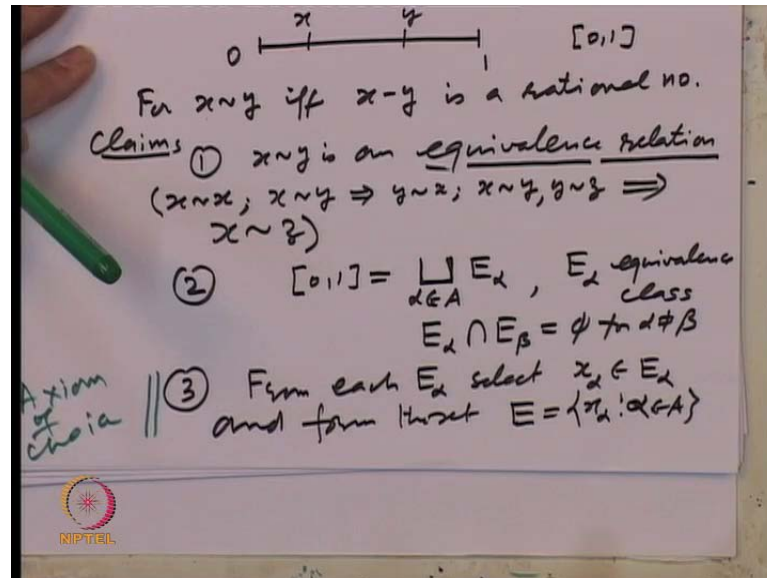 x y
0 1 [0,1]
For x~y iff x-y is a rational no.
Claims ① x~y is an equivalence relation
(x~x; x~y ⇒ y~x; x~y, y~z ⇒
x~z)
② [0,1] = ⊔ E_α , E_α equivalence
α∈A class
E_α ∩ E_β = φ for α≠β
Axiom
of
choice
③ From each E_α select x_α ∈ E_α
and form the set E = {x_α : α∈A}
NPTEL